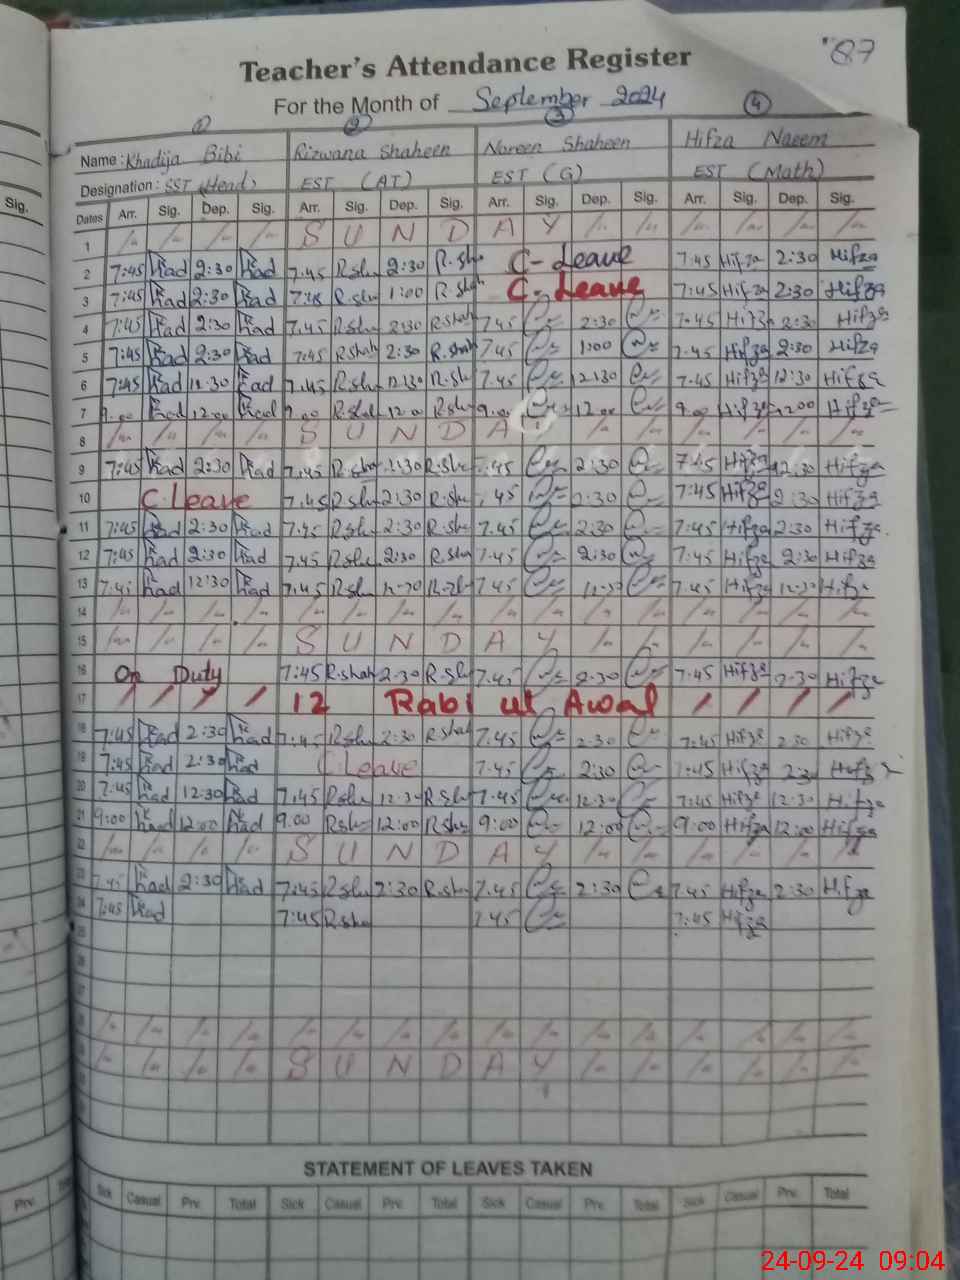 "87
Teacher's Attendance Register
For the Month of September 2024
1 2 3 4
Name: Khadija Bibi Rizwana Shaheen Noreen Shaheen Hifza Naeem
Designation: SST (Head) EST (AT) EST (G) EST (Math)
Sig.
Dates Arr. Sig. Dep. Sig. Arr. Sig. Dep. Sig. Arr. Sig. Dep. Sig. Arr. Sig. Dep. Sig.
1 S U N D A Y
2 7:45 2:30 7.45 R.sh 2:30 R.sh C-Leave 7:45 Hifza 2:30 Hifza
3 7:45 2:30 7:45 R.sh 1:00 R.sh C-Leave 7:45 Hifza 2:30 Hifza
4 7:45 2:30 7.45 R.sh 2:30 R.shah 7.45 2:30 7.45 Hifza 2:30 Hifza
5 7:45 2:30 7:45 R.shah 2:30 R.shah 7.45 1:00 7.45 Hifza 2:30 Hifza
6 7:45 12:30 7.45 R.sh 12:30 R.sh 7.45 12:30 7.45 Hifza 12:30 Hifza
7 9:00 12:00 9.00 R.sh 12:0 R.sh 9.00 12:00 9.00 Hifza 12:00 Hifza
8 S U N D A Y
9 7:45 2:30 7.45 R.sh 2:30 R.sh 7.45 2:30 7:45 Hifza 2:30 Hifza
10 C.Leave 7.45 R.sh 2:30 R.sh 7.45 2:30 7:45 Hifza 2:30 Hifza
11 7:45 2:30 7.45 R.sh 2:30 R.sh 7.45 2:30 7:45 Hifza 2:30 Hifza
12 7:45 2:30 7.45 R.sh 2:30 R.sh 7.45 2:30 7:45 Hifza 2:30 Hifza
13 7:45 12:30 7.45 R.sh 12:30 R.sh 7.45 12:30 7.45 Hifza 12:30 Hifza
14
15 S U N D A Y
16 On Duty 7:45 R.shah 2:30 R.sh 7.45 2:30 7.45 Hifza 2:30 Hifza
17 12 Rabi ul Awal
18 7:45 2:30 7:45 R.sh 2:30 R.shah 7.45 2:30 7:45 Hifza 2:30 Hifza
19 7:45 2:30 C.Leave 7.45 2:30 7:45 Hifza 2:30 Hifza
20 7:45 12:30 7.45 R.sh 12:30 R.sh 7.45 12:30 7:45 Hifza 12:30 Hifza
21 9:00 12:00 9.00 R.sh 12:00 R.sh 9:00 12:00 9:00 Hifza 12:00 Hifza
22 S U N D A Y
23 7:45 2:30 7:45 R.sh 2:30 R.sh 7.45 2:30 7.45 Hifza 2:30 Hifza
24 7:45 7:45 R.sh 7.45 7:45 Hifza
25
26
27
28
29 S U N D A Y
STATEMENT OF LEAVES TAKEN
Prv. Sick Casual Prv. Total Sick Casual Prv. Total Sick Casual Prv. Total Sick Casual Prv. Total
24-09-24 09:04